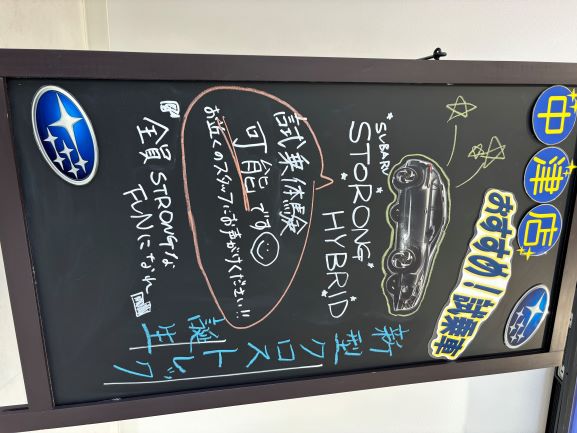 中津店
おすすめ！試乗車
SUBARU
STORONG
HYBRID
新型クロストレック
誕生
試乗体験
可能です
お近くのスタッフにお声がけください!!
全員 STRONGな
FUNになれ